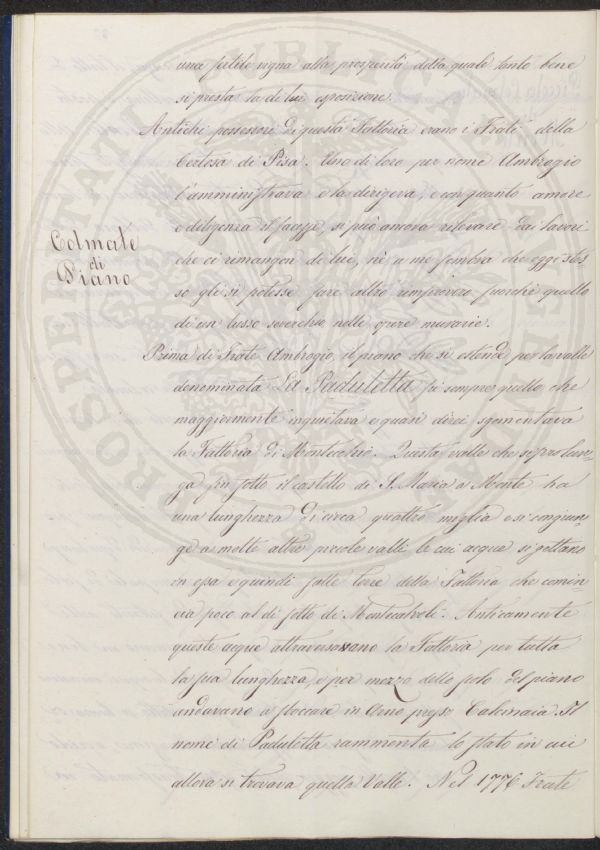 una fertile vigna alla prosperità della quale tanto bene
si presta la di lui esposizione.
Antichi possessori di questa Fattoria erano i Frati della
Certosa di Pisa. Uno di loro per nome Ambrogio
l'amministrava e la dirigeva, e con quanto amore
e diligenza il facesse, si può ancora rilevare dai lavori
che ci rimangon di lui, nè a me sembra che oggi stes
so gli si potesse fare altro rimprovero fuorchè quello
di un lusso soverchio nelle opere murarie.
Colmate
di
Piano
Prima di Frate Ambrogio, il piano che si estende per la valle
denominata La Paduletta, fù sempre quello che
maggiormente inquietava e quasi direi sgomentava
la Fattoria di Montecchio. Questa valle che si prolun-
ga fin sotto il castello di S. Maria a Monte ha
una lunghezza di circa quattro miglia e si congiun-
ge a molte altre piccole valli le cui acque si gettano
in essa e quindi sulle terre della Fattoria che comin-
cia poco al di sotto di Montecalvoli. Anticamente
queste acque attraversavano la Fattoria per tutta
la sua lunghezza, e per mezzo dello scolo del piano
andavano a sboccare in Arno presso Calcinaia. Il
nome di Paduletta rammenta lo stato in cui
allora si trovava quella Valle. Nel 1776 Frate
PROSPERITATI PUBLICAE AUGENDAE